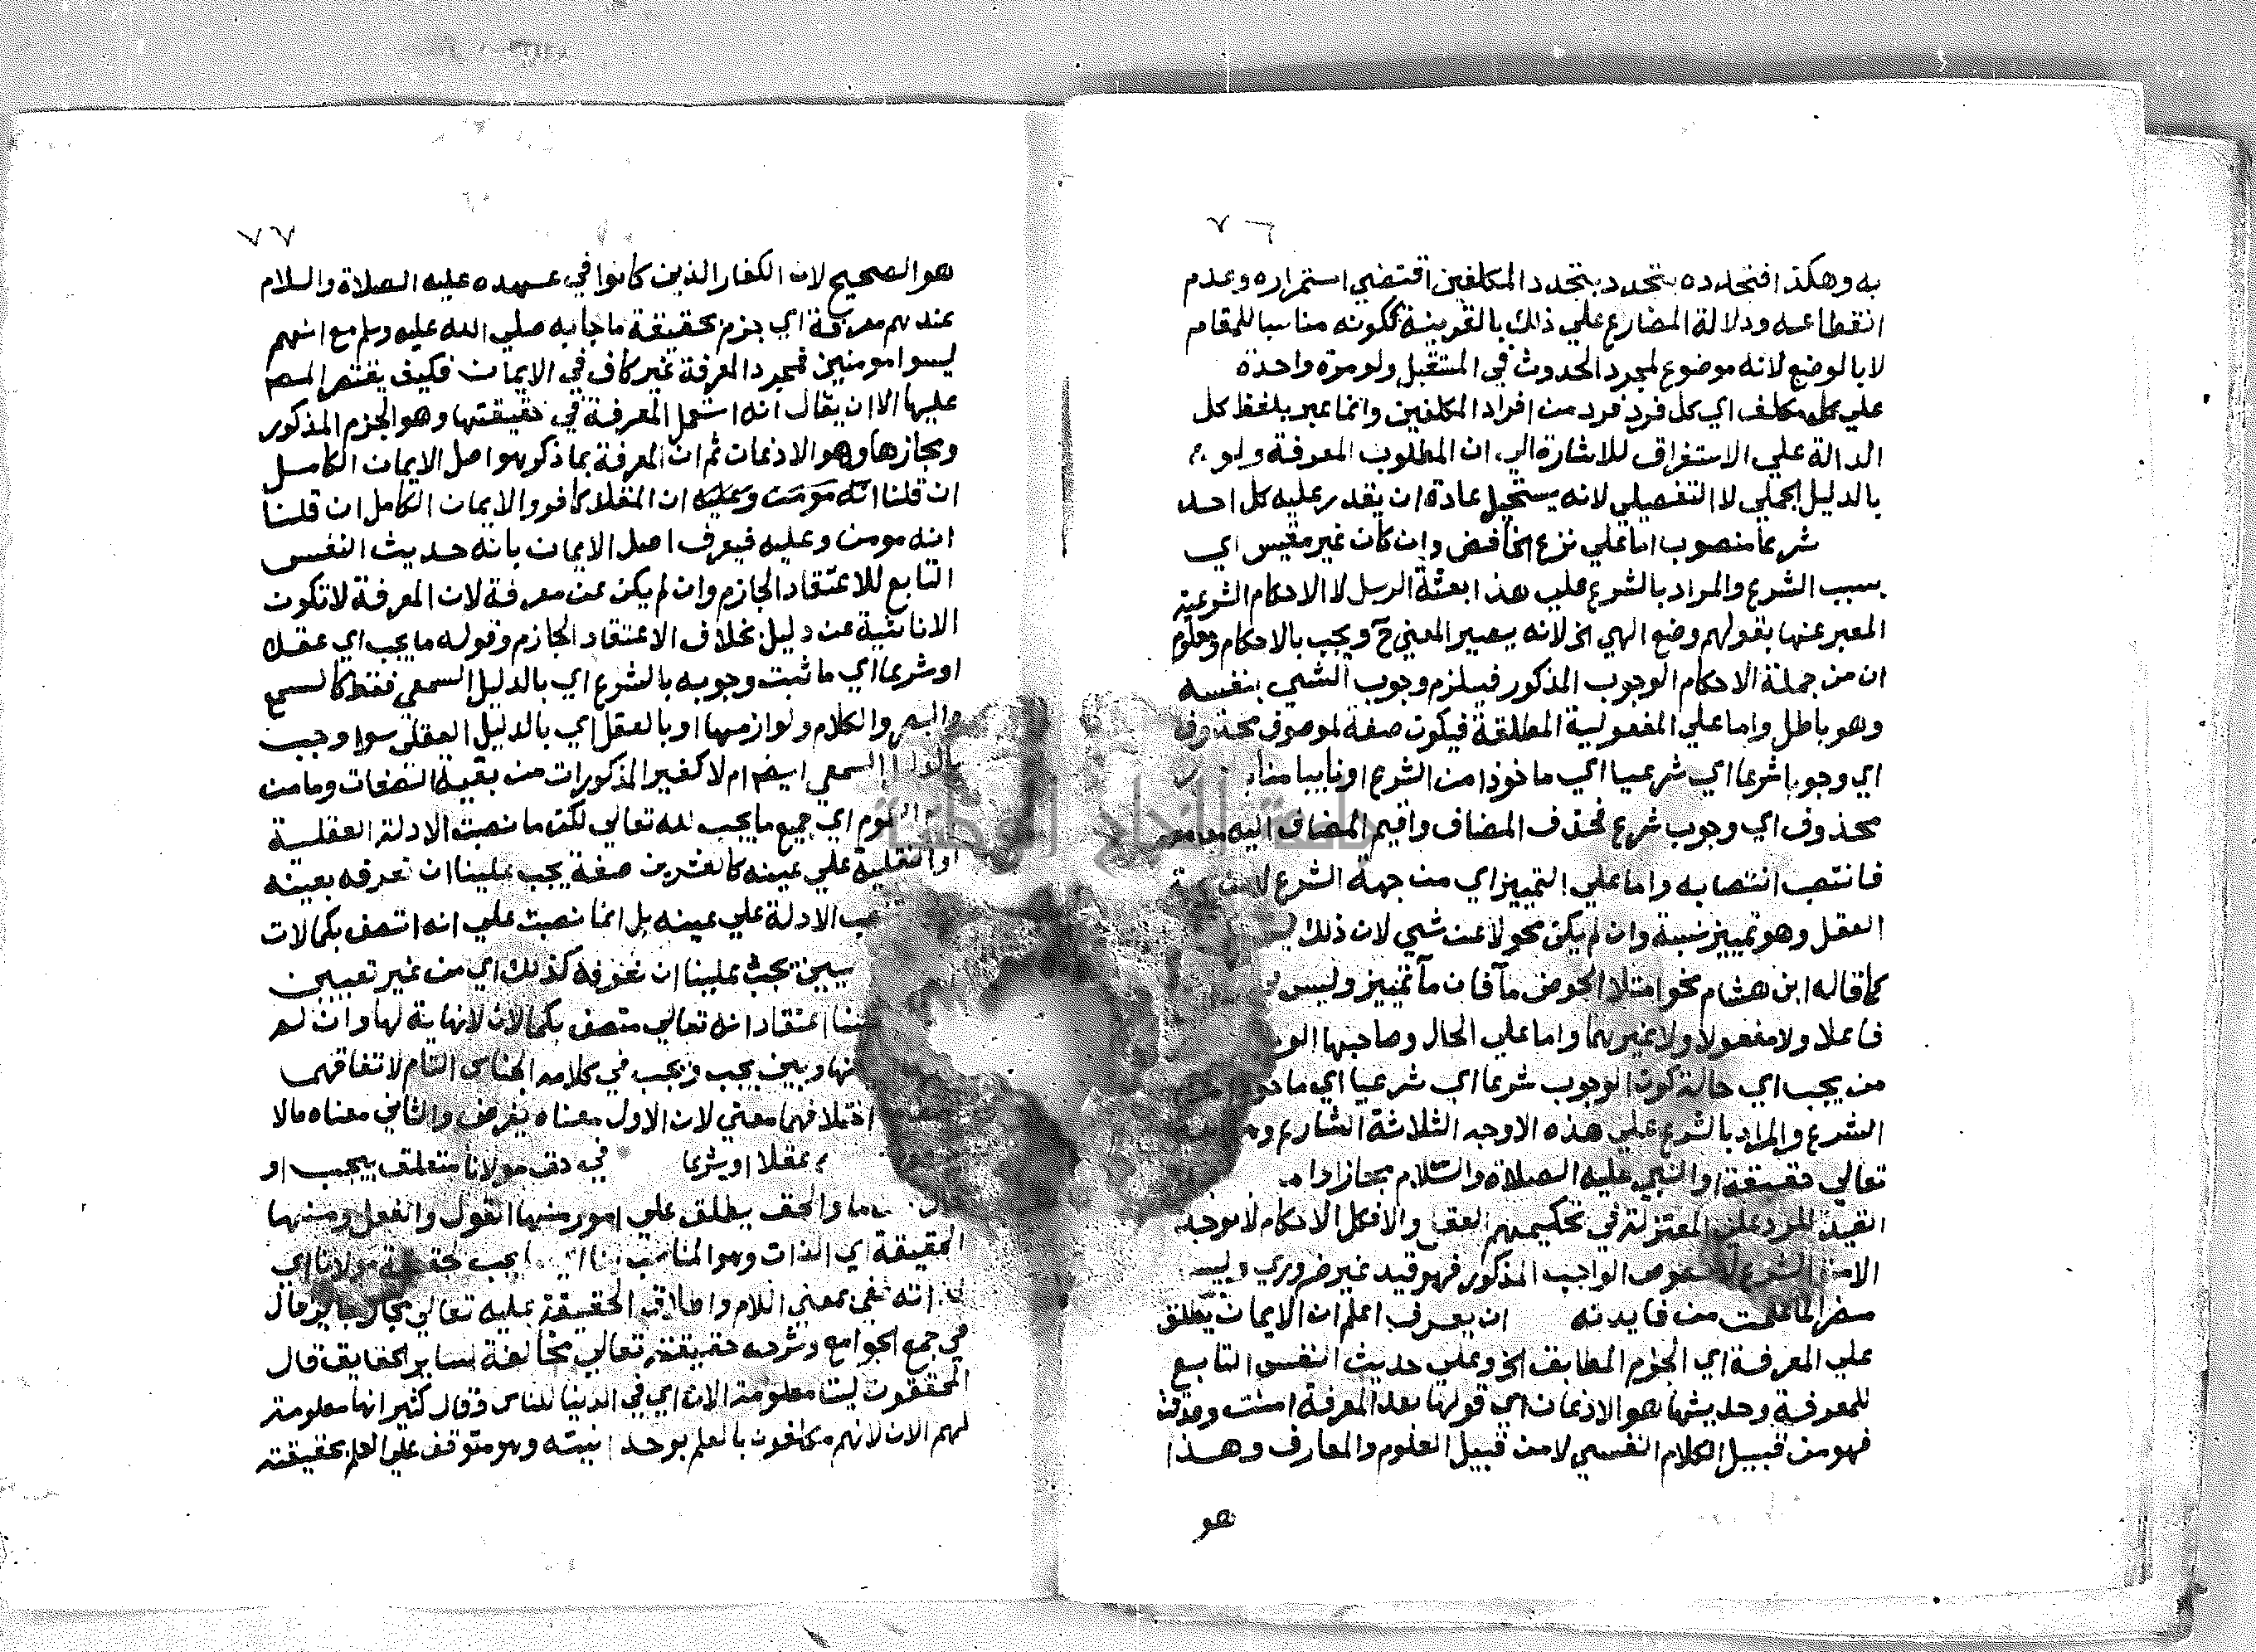 ٧٦
به وهكذا فتجدده بتجدد بتجدد المكلفين اقتضي استمراره وعدم
انقطاعه ودلالة المضارع علي ذلك بالقرينة ككونه مناسبا للمقام
لا بالوضع لانه موضوع لمجرد الحدوث في المستقبل ولو مرة واحدة
علي كل مكلف اي كل فرد فرد من افراد المكلفين وانما عبر بلفظ كل
الدالة علي الاستغراق للاشارة الي ان المطلوب المعرفة ولو
بالدليل الجملي لا التفصيلي لانه يستحيل عادة ان يقدر عليه كل احد
شرعا منصوب اما علي نزع الخافض وان كان غير مقيس اي
بسبب الشرع والمراد بالشرع علي هذا بعثة الرسل لا الاحكام الشرعية
المعبر عنها بقولهم وضع الهي الخ لانه يصير المعني ح ويجب بالاحكام ومعلوم
ان من جملة الاحكام الوجوب المذكور فيلزم وجوب الشي بنفسه
وهو باطل واما علي المفعولية المطلقة فيكون صفة لموصوف محذوف
اي وجوبا شرعا اي شرعيا اي ماخوذا من الشرع او نايبا مناب
محذوف اي وجوب شرع فحذف المضاف واقيم المضاف اليه مقامه
فانتصب انتصابه واما علي التمييز اي من جهة الشرع لا من جهة
العقل وهو تمييز نسبة وان لم يكن محولا عن شي لان ذلك
كما قاله ابن هشام نحو امتلا الحوض مآ فان مآ تمييز وليس
فاعلا ولا مفعولا ولا غيرهما واما علي الحال وصاحبها
من يجب اي حالة كون الوجوب شرعا اي شرعيا اي
الشرع والمراد بالشرع علي هذه الاوجه الثلاثة الشارع
تعالي حقيقة او النبي عليه الصلاة والسلام مجازا
القيد للرد علي المعتزلة في تحكيمهم العقل والا فكل الاحكام لا توجد
الا من الشرع لا خصوص الواجب المذكور فهو قيد غير ضروري
مضرا لما علمت من فايدته ان يعرف اعلم ان الايمان يطلق
علي المعرفة اي الجزم المطابق الخ وعلي حديث النفس التابع
للمعرفة وحديثها هو الاذعان اي قولها بعد المعرفة امنت وصدقت
فهو من قبيل الكلام النفسي لا من قبيل العلوم والمعارف وهذا
هو
٧٧
هو الصحيح لان الكفار الذين كانوا في عهده عليه الصلاة والسلام
عندهم معرفة اي جزم بحقيقة ما جا به صلي الله عليه وسلم مع انهم
ليسوا مومنين فمجرد المعرفة غير كاف في الايمان فكيف يقتصر المص
عليها الا ان يقال انه استعمل المعرفة في حقيقتها وهو الجزم المذكور
ومجازها وهو الاذعان ثم ان المعرفة بما ذكر هو اصل الايمان الكامل
ان قلنا انه مومن وعليه ان المقلد كافر والايمان الكامل ان قلنا
انه مومن وعليه فيعرف اصل الايمان بانه حديث النفس
التابع للاعتقاد الجازم وان لم يكن عن معرفة لان المعرفة لا تكون
الا ناشية عن دليل بخلاف الاعتقاد الجازم وقوله ما يجب اي عقلا
او شرعا اي ما ثبت وجوبه بالشرع اي بالدليل السمعي فقط كالسمع
والبصر والكلام ولوازمها او بالعقل اي بالدليل العقلي سوا وجب
السمعي ايضا ام لا كغير المذكورات من بقية الصفات وما من
اي جميع ما يجب لله تعالي لكن ما نصبت الادلة العقلية
او النقلية علي عينه كالعشرين صفة يجب علينا ان نعرفه بعينه
الادلة علي عينه بل انما نصبت علي انه اتصف بكمالات
يجب علينا ان نعرفه كذلك اي من غير تعيين
اعتقاد انه تعالي متصف بكمالات لا نهاية لها وان لم
وبين يجب ويجب في كلامه الجناس التام لاتفاقهما
اختلافهما معني لان الاول معناه يفرض والثاني معناه مالا
عقلا او شرعا في حق مولانا متعلق بيجب او
والحق يطلق علي امور منها القول والفعل ومنها
الحقيقة اي الذات وهو المناسب يجب لحقيقة مولانا اي
انه في بمعني اللام واطلاق الحقيقة عليه تعالي قال
في جمع الجوامع وشرحه حقيقته تعالي مخالفة لساير الحقايق قال
المحققون ليست معلومة الان اي في الدنيا للناس وقال كثير انها معلومة
لهم الان لانهم مكلفون بالعلم بوحدانيته وهو متوقف علي العلم بحقيقته